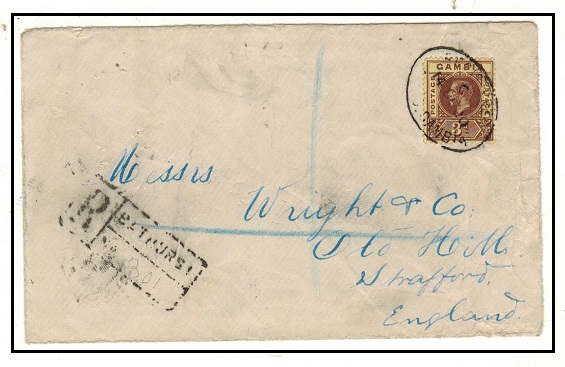 GAMBIA
POSTAGE
3
GAMBIA
R
BATHURST
No
Messrs
Wright & Co.
Old Hill
Strafford.
England.